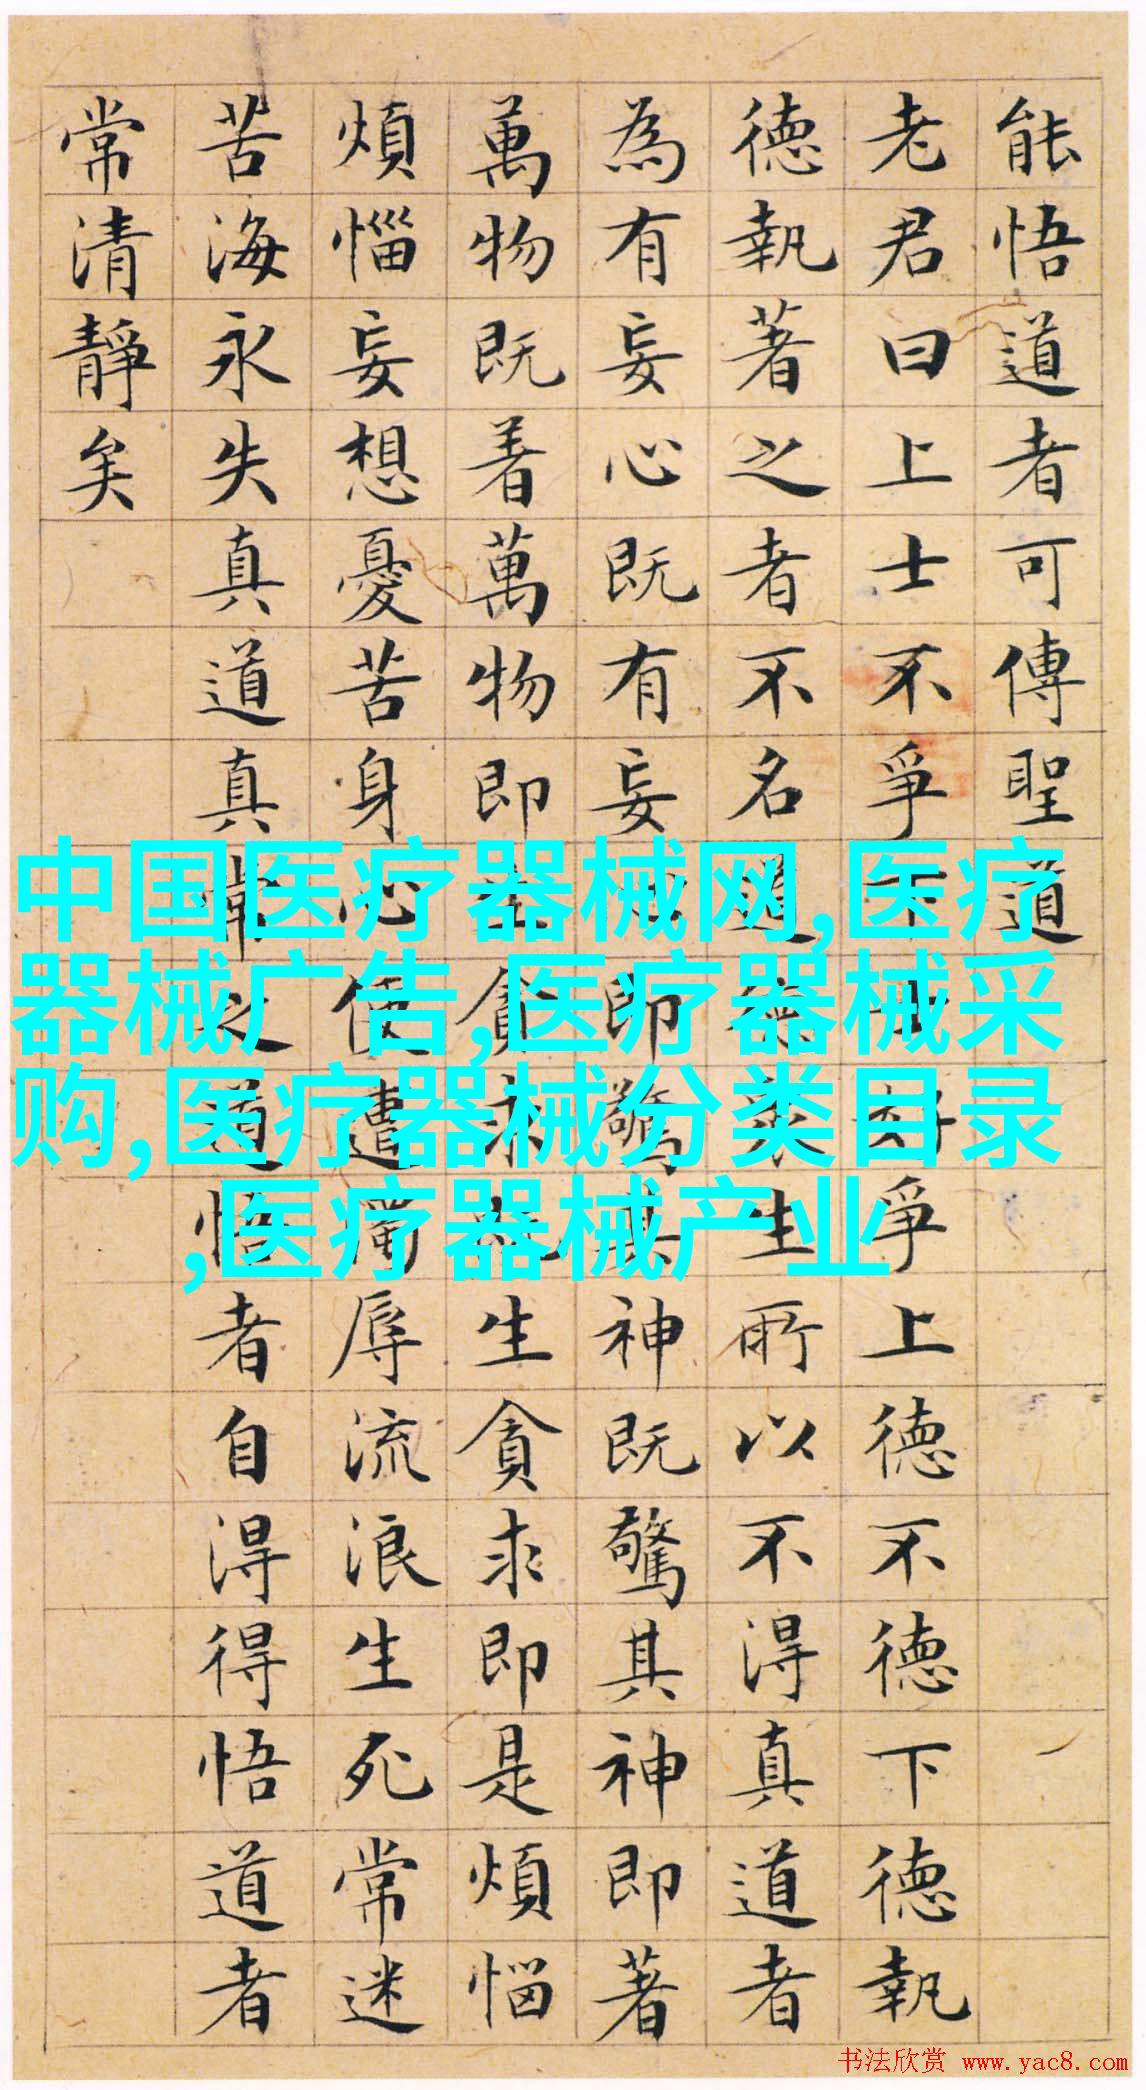 能悟道者可傳聖道
老君曰上士不爭下士好爭上德不德下德執
德執著之者不名道德衆生所以不得真道者
為有妄心既有妄心即驚其神既驚其神即著
萬物既着萬物即生貪求既生貪求即是煩惱
煩惱妄想憂苦身心便遭濁辱流浪生死常迷
苦海永失真道真常之道悟者自得得悟道者
常清靜矣
中国医疗器械网,医疗
器械广告,医疗器械采
购,医疗器械分类目录
,医疗器械产业
书法欣赏 www.yac8.com